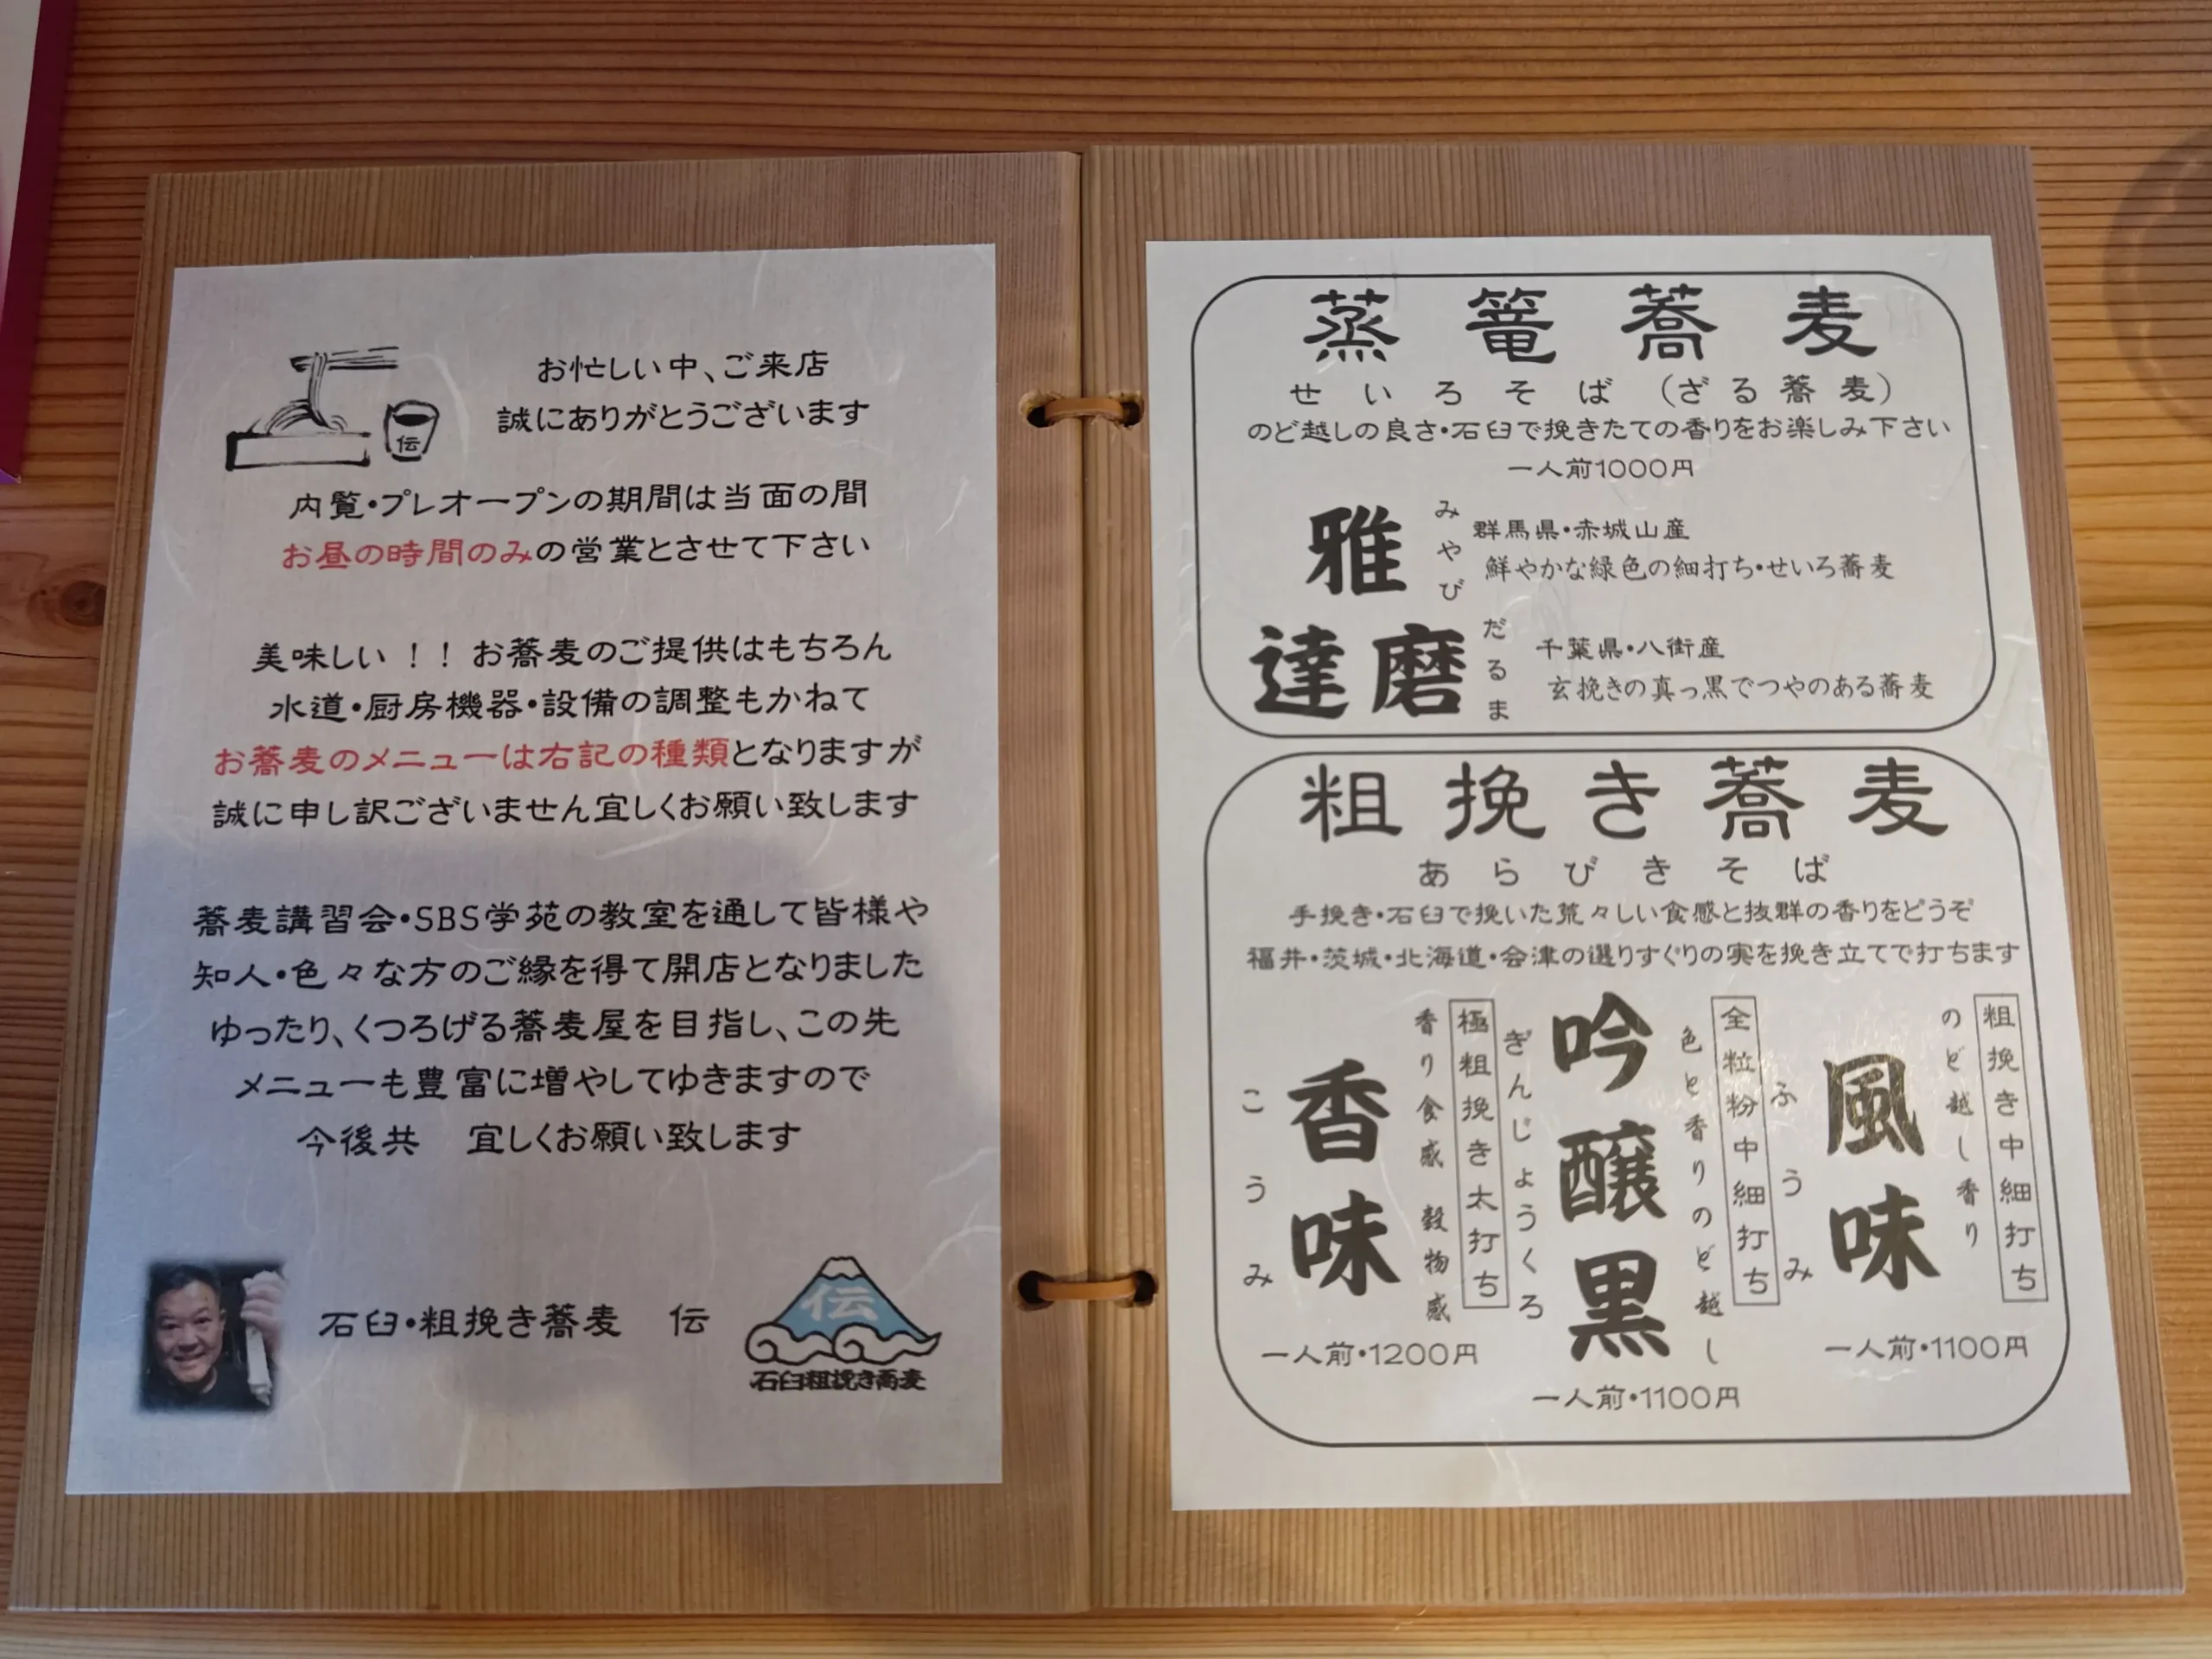 お忙しい中、ご来店
誠にありがとうございます
伝
内覧・プレオープンの期間は当面の間
お昼の時間のみの営業とさせて下さい
美味しい！！お蕎麦のご提供はもちろん
水道・厨房機器・設備の調整もかねて
お蕎麦のメニューは右記の種類となりますが
誠に申し訳ございません宜しくお願い致します
蕎麦講習会・SBS学苑の教室を通して皆様や
知人・色々な方のご縁を得て開店となりました
ゆったり、くつろげる蕎麦屋を目指し、この先
メニューも豊富に増やしてゆきますので
今後共　宜しくお願い致します
石臼・粗挽き蕎麦　伝
伝
石臼粗挽き蕎麦
蒸篭蕎麦
せいろそば（ざる蕎麦）
のど越しの良さ・石臼で挽きたての香りをお楽しみ下さい
一人前1000円
雅
みやび
群馬県・赤城山産
鮮やかな緑色の細打ち・せいろ蕎麦
達磨
だるま
千葉県・八街産
玄挽きの真っ黒でつやのある蕎麦
粗挽き蕎麦
あらびきそば
手挽き・石臼で挽いた荒々しい食感と抜群の香りをどうぞ
福井・茨城・北海道・会津の選りすぐりの実を挽き立てで打ちます
粗挽き中細打ち
のど越し香り
風味
ふうみ
一人前・1100円
全粒粉中細打ち
色と香りのど越し
吟醸黒
ぎんじょうくろ
一人前・1100円
極粗挽き太打ち
香り食感　穀物感
香味
こうみ
一人前・1200円